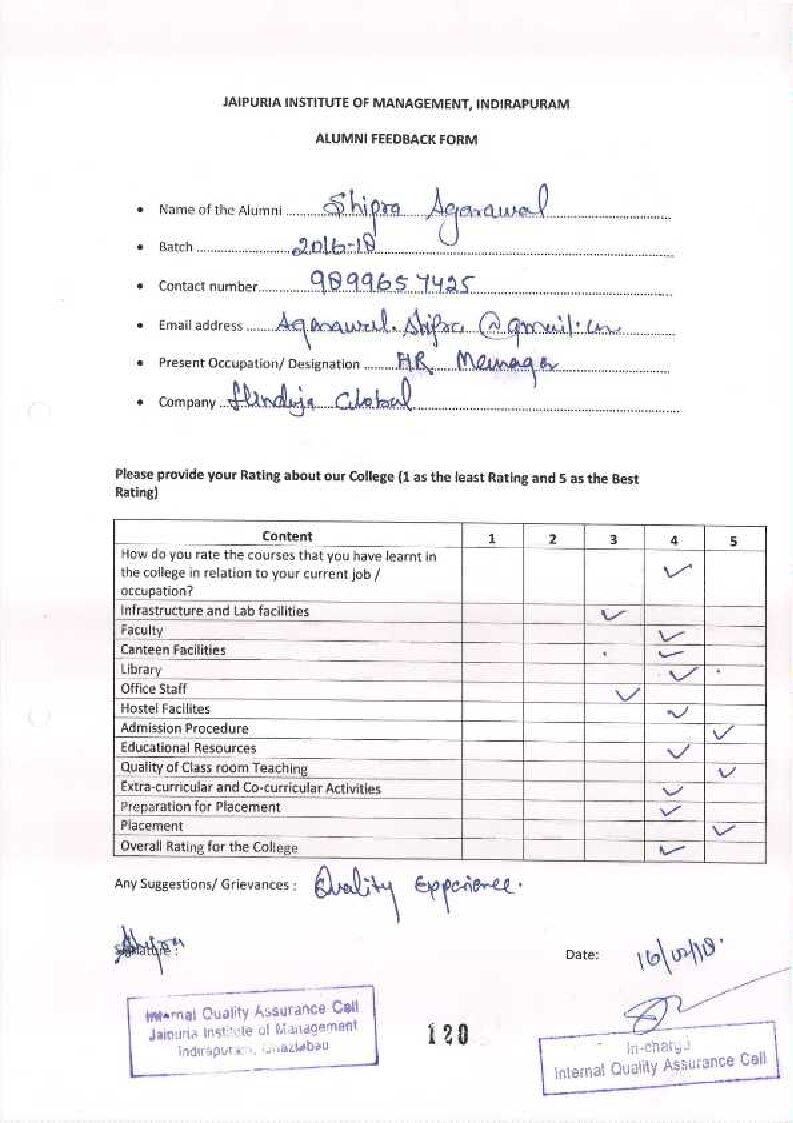 JAIPURIA INSTITUTE OF MANAGEMENT, INDIRAPURAM
ALUMNI FEEDBACK FORM
• Name of the Alumni Shipra Agarawal
• Batch 2016-18
• Contact number 9899657425
• Email address Agarawal.shipra@gmail.com
• Present Occupation/ Designation HR Manager
• Company Hinduja Global
Please provide your Rating about our College (1 as the least Rating and 5 as the Best
Rating)
Content 1 2 3 4 5
How do you rate the courses that you have learnt in
the college in relation to your current job /
occupation? ✓
Infrastructure and Lab facilities ✓
Faculty ✓
Canteen Facilities ✓
Library ✓
Office Staff ✓
Hostel Facilites ✓
Admission Procedure ✓
Educational Resources ✓
Quality of Class room Teaching ✓
Extra-curricular and Co-curricular Activities ✓
Preparation for Placement ✓
Placement ✓
Overall Rating for the College ✓
Any Suggestions/ Grievances : Quality Experience.
Signature : Shipra
Date: 16/02/18.
Internal Quality Assurance Cell
Jaipuria Institute of Management
Indirapuram, Ghaziabad
120
In-charge
Internal Quality Assurance Cell